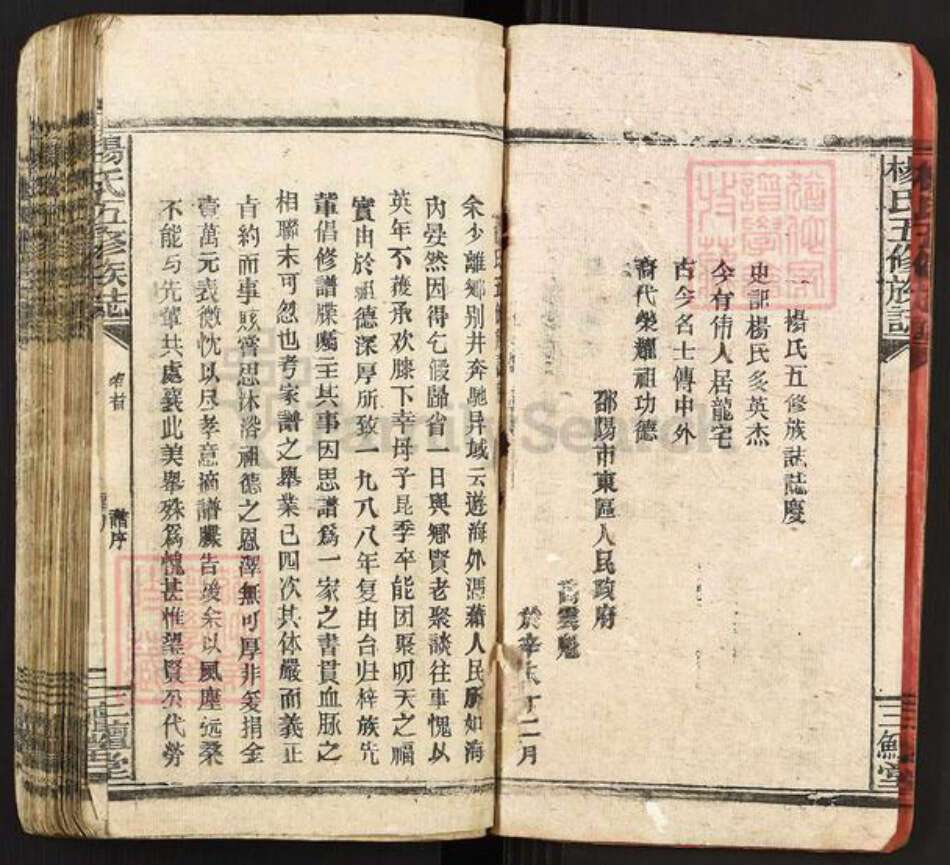 楊氏五修族誌
三鱣堂
楊氏五修族誌誌慶
史記楊氏多英杰
今有偉人居龍宅
古今名士傳中外
裔代榮耀祖功德
邵陽市東區人民政府
於辛未 十二月
余少離鄉别井奔馳异域云遊海外漂蕭人民脉如海
内晏然因得乞假歸省一日與鄉賢老聚談往事愧以
英年不获承欢膝下幸母子昆季卒能团聚叨天之福
實由於祖德深厚所致一九八八年复由台归梓族先
輩倡修譜牒嘱主其事因思譜爲一家之書貫血脉之
相聯未可忽也考家譜之舉業已四次其体嚴而義正
旨約而事賅嘗思沐浴祖德之恩澤無可厚非爰捐金
壹萬元表微忱以尽孝意 譜牒告竣余以風塵远桑
不能与先輩共處襄此美舉殊爲愧甚惟望賢 代勞
楊氏五修族誌
譜序
三鱣堂
FamilySearch